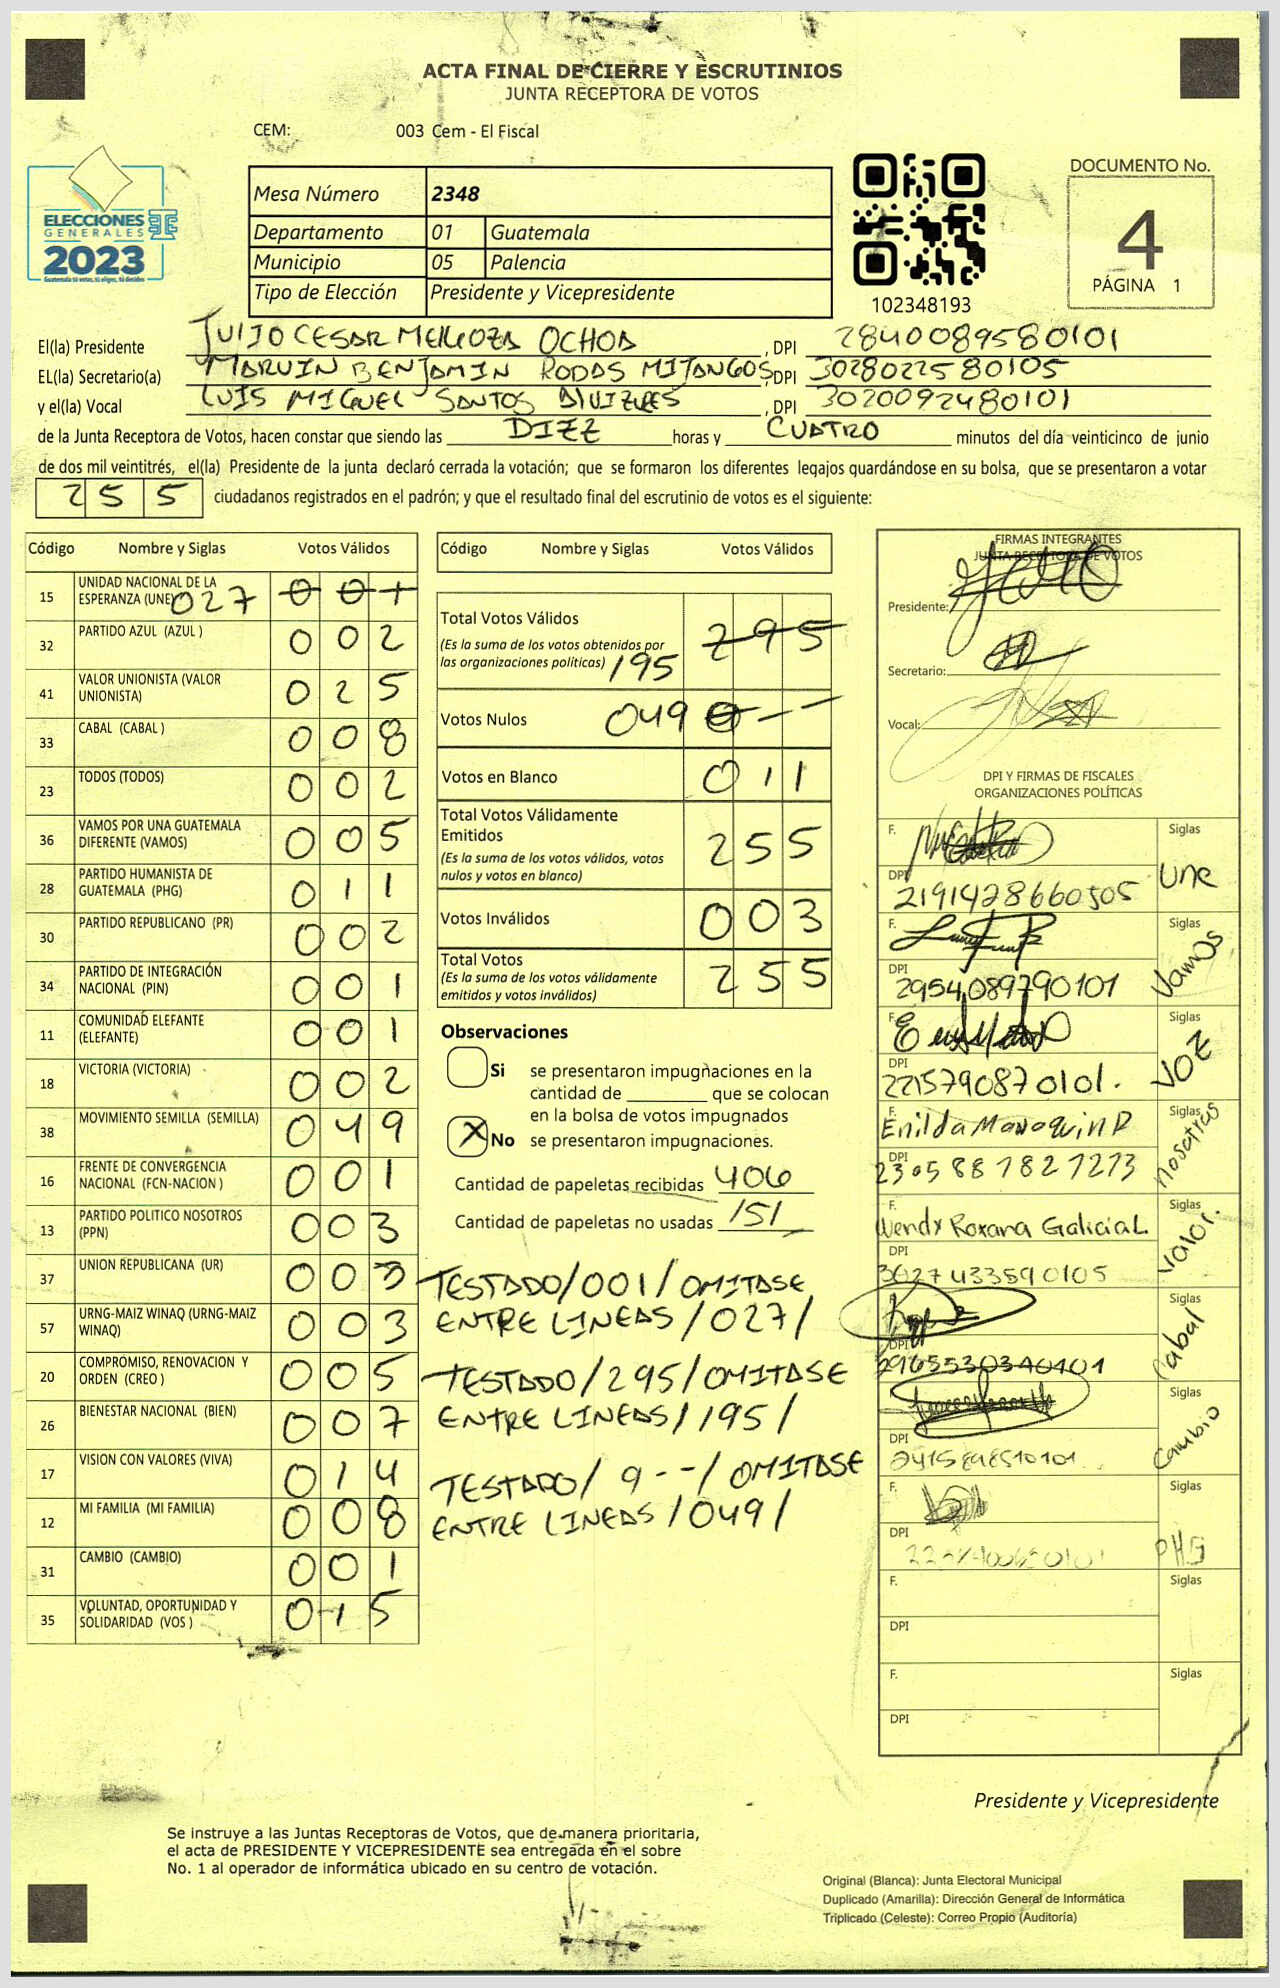 ACTA FINAL DE CIERRE Y ESCRUTINIOS
JUNTA RECEPTORA DE VOTOS
CEM: 003 Cem - El Fiscal
ELECCIONES
GENERALES
2023
Mesa Número 2348
Departamento 01 Guatemala
Municipio 05 Palencia
Tipo de Elección Presidente y Vicepresidente
102348193
DOCUMENTO No.
4
PÁGINA 1
El(la) Presidente CESAR OCHOA , DPI 2840089580101
EL(la) Secretario(a) MARVIN BENJAMIN RODAS MIJANGOS, DPI 3028022580105
y el(la) Vocal LUIS MIGUEL SANTOS , DPI 3020092480101
de la Junta Receptora de Votos, hacen constar que siendo las DIEZ horas y CUATRO minutos del día veinticinco de junio
de dos mil veintitrés, el(la) Presidente de la junta declaró cerrada la votación; que se formaron los diferentes legajos quardándose en su bolsa, que se presentaron a votar
255 ciudadanos registrados en el padrón; y que el resultado final del escrutinio de votos es el siguiente:
Código Nombre y Siglas Votos Válidos
15 UNIDAD NACIONAL DE LA ESPERANZA (UNE) 027 001
32 PARTIDO AZUL (AZUL ) 002
41 VALOR UNIONISTA (VALOR UNIONISTA) 025
33 CABAL (CABAL ) 008
23 TODOS (TODOS) 002
36 VAMOS POR UNA GUATEMALA DIFERENTE (VAMOS) 005
28 PARTIDO HUMANISTA DE GUATEMALA (PHG) 011
30 PARTIDO REPUBLICANO (PR) 002
34 PARTIDO DE INTEGRACIÓN NACIONAL (PIN) 001
11 COMUNIDAD ELEFANTE (ELEFANTE) 001
18 VICTORIA (VICTORIA) 002
38 MOVIMIENTO SEMILLA (SEMILLA) 049
16 FRENTE DE CONVERGENCIA NACIONAL (FCN-NACION ) 001
13 PARTIDO POLITICO NOSOTROS (PPN) 003
37 UNION REPUBLICANA (UR) 003
57 URNG-MAIZ WINAQ (URNG-MAIZ WINAQ) 003
20 COMPROMISO, RENOVACION Y ORDEN (CREO ) 005
26 BIENESTAR NACIONAL (BIEN) 007
17 VISION CON VALORES (VIVA) 014
12 MI FAMILIA (MI FAMILIA) 008
31 CAMBIO (CAMBIO) 001
35 VOLUNTAD, OPORTUNIDAD Y SOLIDARIDAD (VOS ) 015
Código Nombre y Siglas Votos Válidos
Total Votos Válidos 295
(Es la suma de los votos obtenidos por
las organizaciones políticas) 195
Votos Nulos 049 0--
Votos en Blanco 011
Total Votos Válidamente
Emitidos 255
(Es la suma de los votos válidos, votos
nulos y votos en blanco)
Votos Inválidos 003
Total Votos 255
(Es la suma de los votos válidamente
emitidos y votos inválidos)
Observaciones
Si se presentaron impugnaciones en la
cantidad de ________ que se colocan
en la bolsa de votos impugnados
X No se presentaron impugnaciones.
Cantidad de papeletas recibidas 406
Cantidad de papeletas no usadas 151
TESTADO/001/OMITASE
ENTRE LINEAS/027/
TESTADO/295/OMITASE
ENTRE LINEAS/195/
TESTADO/ 9--/ OMITASE
ENTRE LINEAS/049/
FIRMAS INTEGRANTES
JUNTA RECEPTORA DE VOTOS
Presidente:
Secretario:
Vocal:
DPI Y FIRMAS DE FISCALES
ORGANIZACIONES POLÍTICAS
F. Siglas
DPI 2191428660505 une
F. Siglas
DPI 2954089790101 Vamos
F. Siglas
DPI 2215790870101. VOZ
F. Siglas
DPI 2305887827273 nosotros
F. Wendy Roxana Galicia L Siglas
DPI 3027433590105 Valor.
F. Siglas
DPI 2965530340101 Cabal
F. Siglas
DPI Cambio
F. Siglas
DPI PHG
F. Siglas
DPI
F. Siglas
DPI
Presidente y Vicepresidente
Se instruye a las Juntas Receptoras de Votos, que de manera prioritaria,
el acta de PRESIDENTE Y VICEPRESIDENTE sea entregada en el sobre
No. 1 al operador de informática ubicado en su centro de votación.
Original (Blanca): Junta Electoral Municipal
Duplicado (Amarilla): Dirección General de Informática
Triplicado (Celeste): Correo Propio (Auditoría)